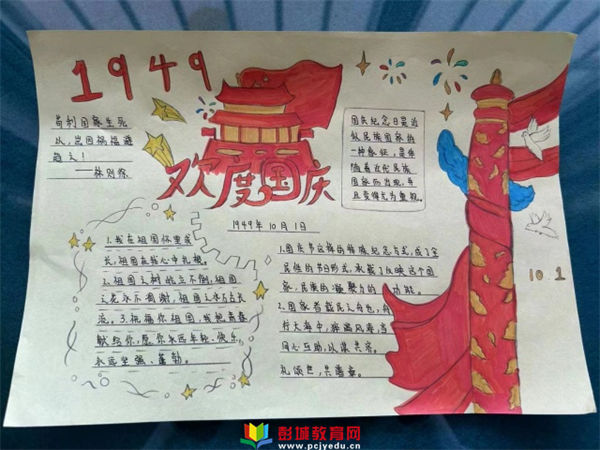 1949
苟利国家生死
以，岂因祸福避
趋之！
——林则徐
欢度国庆
国庆纪念日是近
代民族国家的
一种象征，是伴
随着近代民族
国家而出现，并
且变得尤为重要。
1949年10月1日
1.我在祖国怀里成
长，祖国在我心中扎根。
2.祖国之树屹立不倒，祖国
之花永不凋谢，祖国之水占占长
流。3.祝福你祖国，我把青春
献给你，愿你永远年轻、快乐，
永远坚强、蓬勃。
1.国庆节这样的特殊纪念方式，成了全
民性的节日形式，承载了反映这个国
家、民族的凝聚力的功能。
2.国家者载民之舟也，舟
行大海中，疾遍风涛，当
同心互助，以谋共济。
礼颂已，共勇奋。
10.1
彭城教育网
www.pcjyedu.cn